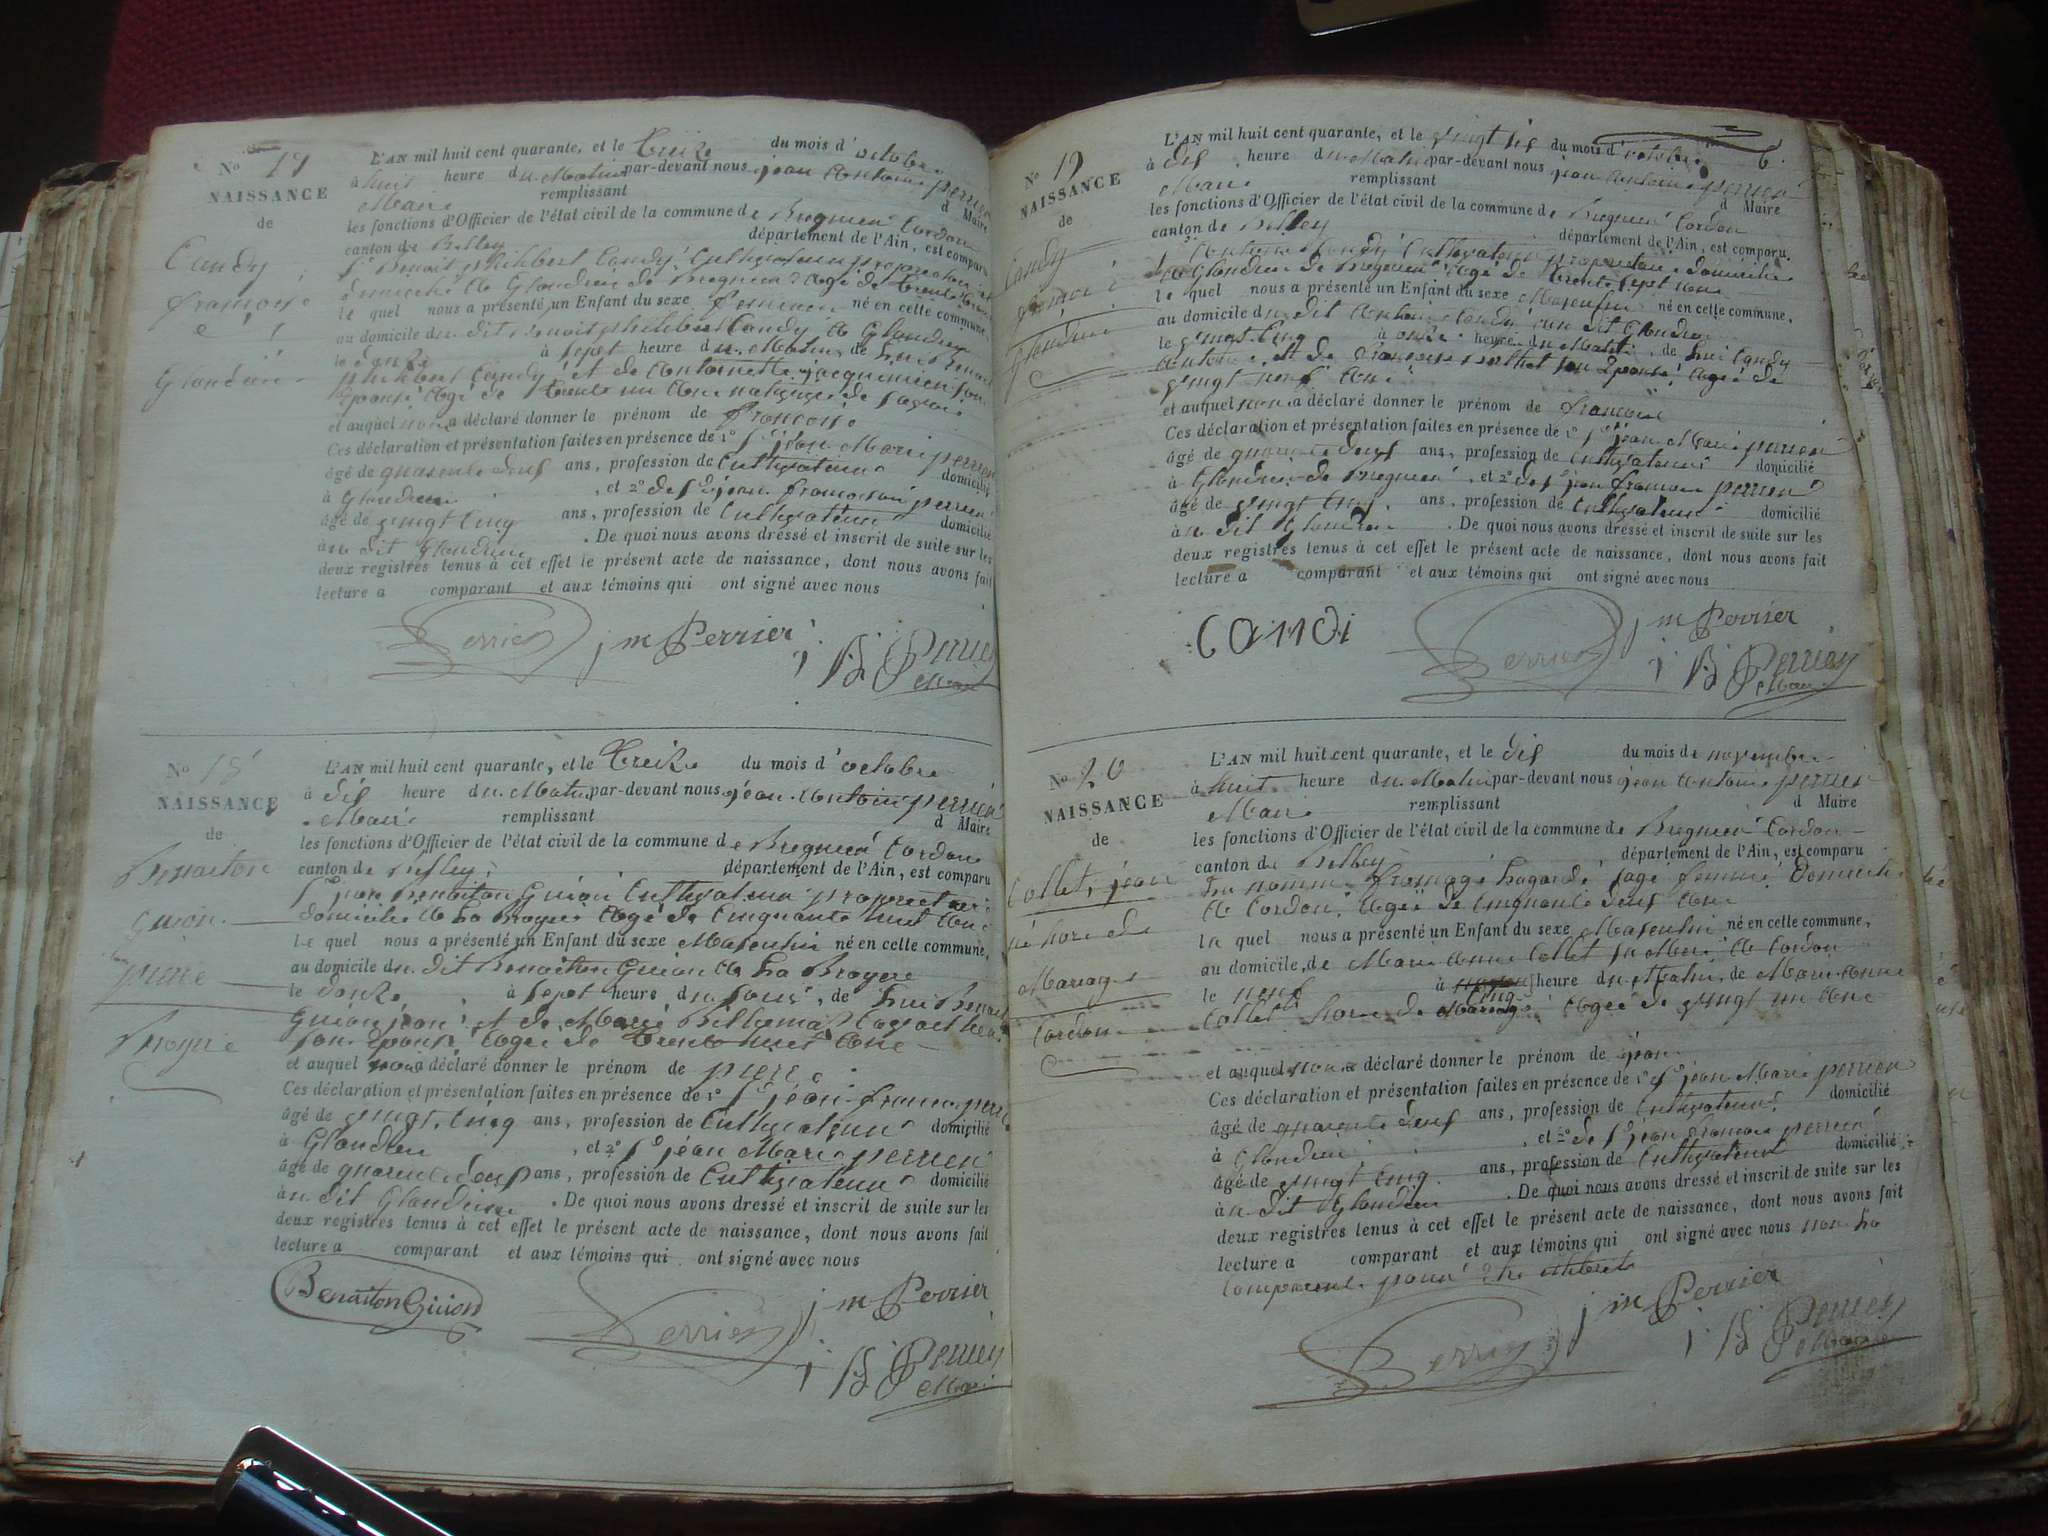 No 17
NAISSANCE
de
Candy
françoise
Glandieu
L'AN mil huit cent quarante, et le treize du mois d'octobre
à huit heure du Matin par-devant nous jean antoine perrier
Maire remplissant d Maire
les fonctions d'Officier de l'état civil de la commune de Bregnier Cordon
canton de Belley département de l'Ain, est comparu
Sr Benoit philibert Candy Cultivateur propriétaire
domicilié à Glandieu de Bregnier agé de trente
le quel nous a présenté un Enfant du sexe feminin né en cette commune,
au domicile du dit Benoit philibert Candy à Glandieu
le douze à sept heure du Matin de lui Benoit
philibert Candy et de antoinette jacquemier son
Epouse agé de trente un ans
et auquel nous a déclaré donner le prénom de françoise
Ces déclaration et présentation faites en présence de 1o Sr jean Marie perrier
âgé de quarante deux ans, profession de Cultivateur domicilié
à Glandieu, et 2o de Sr jean françois perrier
âgé de vingt cinq ans, profession de Cultivateur domicilié
à u dit Glandieu. De quoi nous avons dressé et inscrit de suite sur les
deux registres tenus à cet effet le présent acte de naissance, dont nous avons fait
lecture a comparant et aux témoins qui ont signé avec nous
Perrier j m Perrier
j B Perrier
Maire
No 18
NAISSANCE
de
Benaiton
Guion
pierre
Broyere
L'AN mil huit cent quarante, et le treize du mois d'octobre
à dix heure du Matin par-devant nous jean antoine perrier
Maire remplissant d Maire
les fonctions d'Officier de l'état civil de la commune de Bregnier Cordon
canton de Belley département de l'Ain, est comparu
Sr jean Benaiton Guion Cultivateur propriétaire
domicilié à La Broyere agé de Cinquante huit ans
le quel nous a présenté un Enfant du sexe Masculin né en cette commune,
au domicile du dit Benaiton Guion à La Broyere
le douze à sept heure du soir, de lui Benaiton
Guion jean et de Marie
son Epouse agée de trente huit ans
et auquel nous a déclaré donner le prénom de pierre
Ces déclaration et présentation faites en présence de 1o Sr jean françois perrier
âgé de vingt cinq ans, profession de Cultivateur domicilié
à Glandieu, et 2o Sr jean Marie perrier
âgé de quarante deux ans, profession de Cultivateur domicilié
à u dit Glandieu. De quoi nous avons dressé et inscrit de suite sur les
deux registres tenus à cet effet le présent acte de naissance, dont nous avons fait
lecture a comparant et aux témoins qui ont signé avec nous
Benaiton Guion Perrier j m Perrier
j B Perrier
Maire
6.
No 19
NAISSANCE
de
Candy
françois
Glandieu
L'AN mil huit cent quarante, et le vingt six du mois d'octobre
à dix heure du Matin par-devant nous jean antoine perrier
Maire remplissant d Maire
les fonctions d'Officier de l'état civil de la commune de Bregnier Cordon
canton de Belley département de l'Ain, est comparu.
Sr antoine Candy Cultivateur propriétaire domicilié
à Glandieu de Bregnier agé de trente sept ans
le quel nous a présenté un Enfant du sexe Masculin né en cette commune,
au domicile du dit antoine Candy au dit Glandieu
le vingt cinq à onze heure du Matin, de lui Candy
antoine et de françoise son Epouse agée de
vingt neuf ans
et auquel nous a déclaré donner le prénom de françois
Ces déclaration et présentation faites en présence de 1o Sr jean Marie perrier
âgé de quarante deux ans, profession de Cultivateur domicilié
à Glandieu de Bregnier, et 2o de Sr jean françois perrier
âgé de vingt cinq ans, profession de Cultivateur domicilié
à u dit Glandieu. De quoi nous avons dressé et inscrit de suite sur les
deux registres tenus à cet effet le présent acte de naissance, dont nous avons fait
lecture a comparant et aux témoins qui ont signé avec nous
CANDI Perrier j m Perrier
j B Perrier
Maire
No 20
NAISSANCE
de
Collet, jean
né hors de
Mariage
Cordon
L'AN mil huit cent quarante, et le dix du mois de novembre
à huit heure du Matin par-devant nous jean antoine perrier
Maire remplissant d Maire
les fonctions d'Officier de l'état civil de la commune de Bregnier Cordon
canton de Belley département de l'Ain, est comparu
sage femme domiciliée
à Cordon, agée de cinquante deux ans
la quel nous a présenté un Enfant du sexe Masculin né en cette commune,
au domicile de Marie anne Collet sa Mere à Cordon
le neuf à cinq heure du Matin, de Marie anne
Collet hors de Mariage agée de vingt un ans
et auquel nous a déclaré donner le prénom de jean
Ces déclaration et présentation faites en présence de 1o Sr jean Marie perrier
âgé de quarante deux ans, profession de Cultivateur domicilié
à Glandieu, et 2o de Sr jean françois perrier
âgé de vingt cinq ans, profession de Cultivateur domicilié
à u dit Glandieu. De quoi nous avons dressé et inscrit de suite sur les
deux registres tenus à cet effet le présent acte de naissance, dont nous avons fait
lecture a comparant et aux témoins qui ont signé avec nous non la
comparante pour
Perrier j m Perrier
j B Perrier
Maire